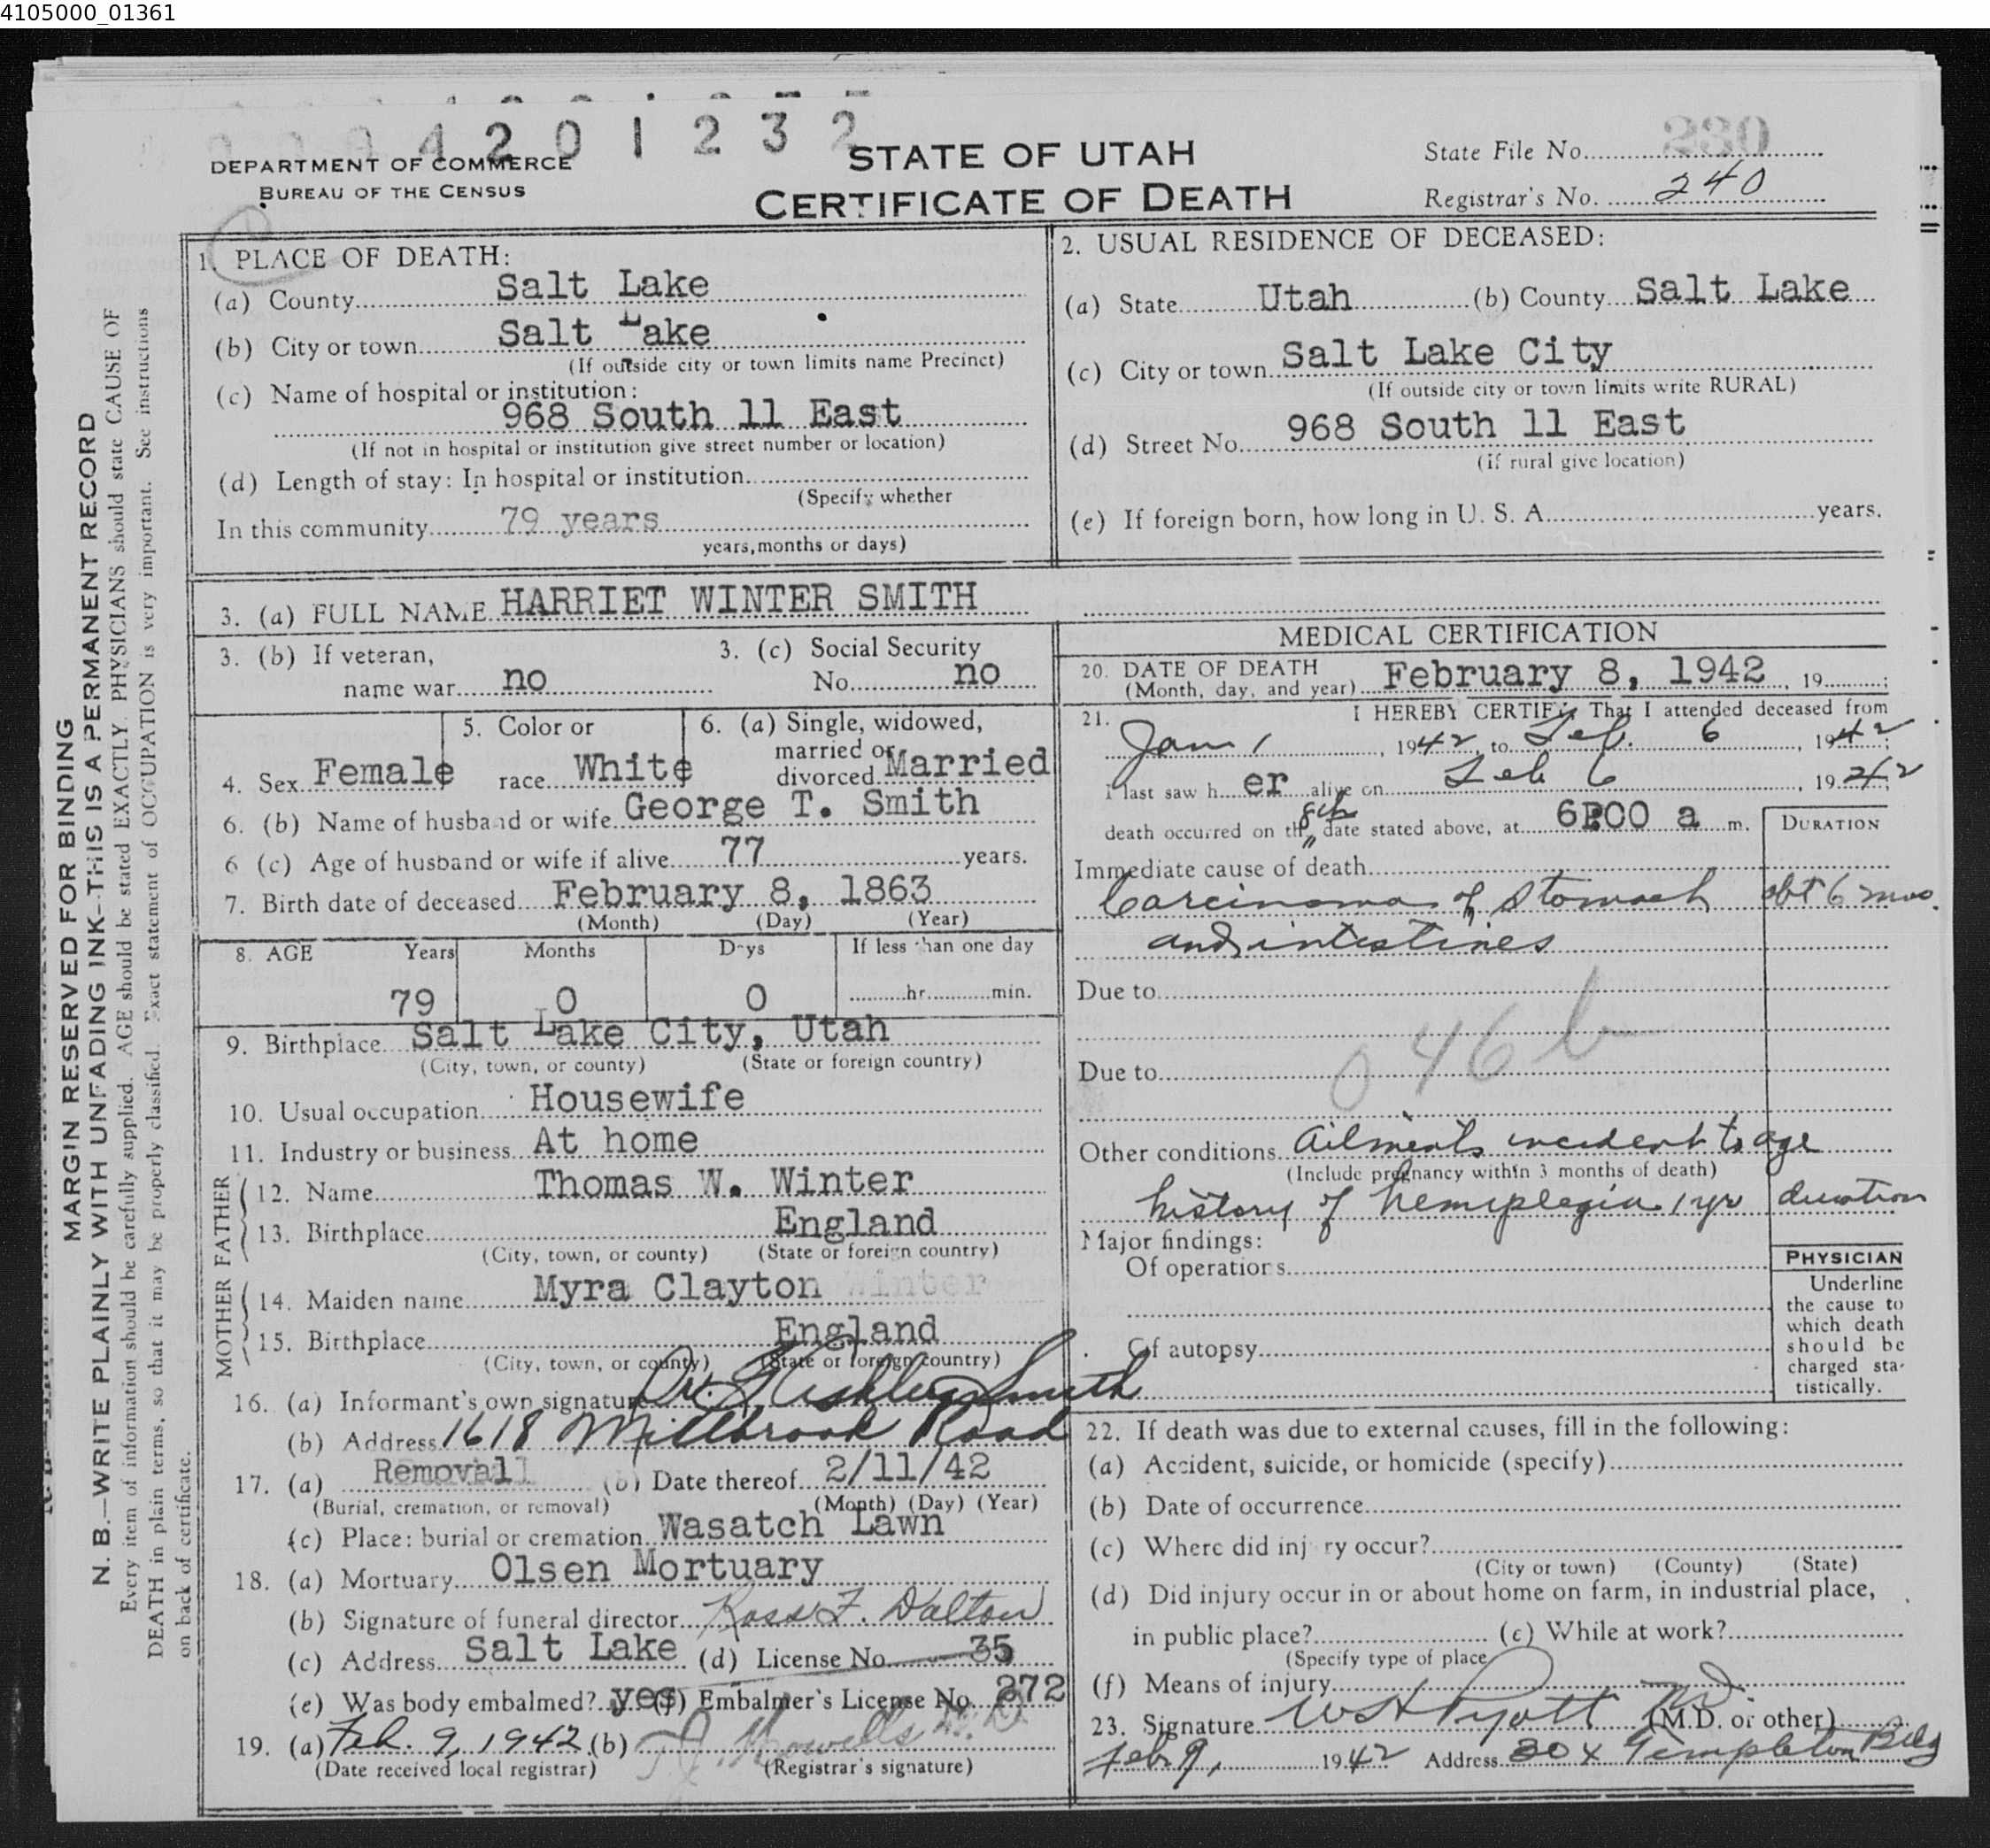 4105000_01361
4201232
DEPARTMENT OF COMMERCE
BUREAU OF THE CENSUS
STATE OF UTAH
CERTIFICATE OF DEATH
State File No. 230
Registrar's No. 240
1. PLACE OF DEATH:
(a) County Salt Lake
(b) City or town Salt Lake
(If outside city or town limits name Precinct)
(c) Name of hospital or institution:
968 South 11 East
(If not in hospital or institution give street number or location)
(d) Length of stay: In hospital or institution
(Specify whether
In this community 79 years
years, months or days)
2. USUAL RESIDENCE OF DECEASED:
(a) State Utah (b) County Salt Lake
(c) City or town Salt Lake City
(If outside city or town limits write RURAL)
(d) Street No. 968 South 11 East
(if rural give location)
(e) If foreign born, how long in U. S. A. years.
3. (a) FULL NAME HARRIET WINTER SMITH
3. (b) If veteran, name war no
3. (c) Social Security No. no
4. Sex Female
5. Color or race White
6. (a) Single, widowed, married or divorced Married
6. (b) Name of husband or wife George T. Smith
6 (c) Age of husband or wife if alive 77 years.
7. Birth date of deceased February 8, 1863
(Month) (Day) (Year)
8. AGE Years Months Days If less than one day
79 0 0 hr. min.
9. Birthplace Salt Lake City, Utah
(City, town, or county) (State or foreign country)
10. Usual occupation Housewife
11. Industry or business At home
FATHER
12. Name Thomas W. Winter
13. Birthplace England
(City, town, or county) (State or foreign country)
MOTHER
14. Maiden name Myra Clayton Winter
15. Birthplace England
(City, town, or county) (State or foreign country)
16. (a) Informant's own signature Dr. Smith
(b) Address 1618 Millbrook Road
17. (a) Removal (b) Date thereof 2/11/42
(Burial, cremation, or removal) (Month) (Day) (Year)
(c) Place: burial or cremation Wasatch Lawn
18. (a) Mortuary Olsen Mortuary
(b) Signature of funeral director Ross F. Dalton
(c) Address Salt Lake (d) License No. 35
(e) Was body embalmed? yes (f) Embalmer's License No. 272
19. (a) Feb. 9, 1942 (b)
(Date received local registrar) (Registrar's signature)
MEDICAL CERTIFICATION
20. DATE OF DEATH
(Month, day, and year) February 8, 1942, 19 ;
21. I HEREBY CERTIFY That I attended deceased from
Jan 1, 1942, to Feb. 6, 1942;
I last saw h er alive on Feb 6, 1942;
8th
death occurred on the date stated above, at 6:00 a m.
DURATION
Immediate cause of death
Carcinoma of Stomach abt 6 mos.
and intestines
Due to
046b
Due to
Other conditions ailments incident to age
(Include pregnancy within 3 months of death)
history of hemiplegia 1 yr duration
Major findings:
Of operations
Of autopsy
PHYSICIAN
Underline
the cause to
which death
should be
charged sta-
tistically.
22. If death was due to external causes, fill in the following:
(a) Accident, suicide, or homicide (specify)
(b) Date of occurrence
(c) Where did injury occur?
(City or town) (County) (State)
(d) Did injury occur in or about home on farm, in industrial place,
in public place? (e) While at work?
(Specify type of place
(f) Means of injury
23. Signature W H Pyott M.D. (M.D. or other)
Feb. 9, 1942 Address Templeton Bldg
MARGIN RESERVED FOR BINDING
N. B.—WRITE PLAINLY WITH UNFADING INK—THIS IS A PERMANENT RECORD
Every item of information should be carefully supplied. AGE should be stated EXACTLY. PHYSICIANS should state CAUSE OF
DEATH in plain terms, so that it may be properly classified. Exact statement of OCCUPATION is very important. See instructions
on back of certificate.